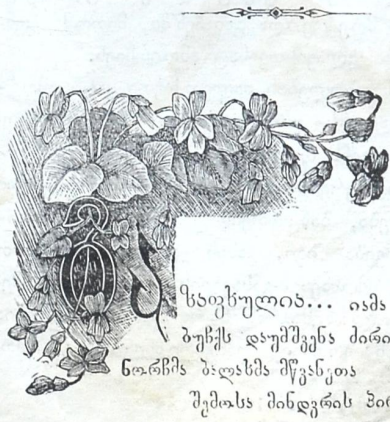 ზაფხულია... იამა
ბუჩქს დაუმშვენა ძირი
ნორჩმა ბალახმა მწვანეთა
შემოსა მინდვრის პირ